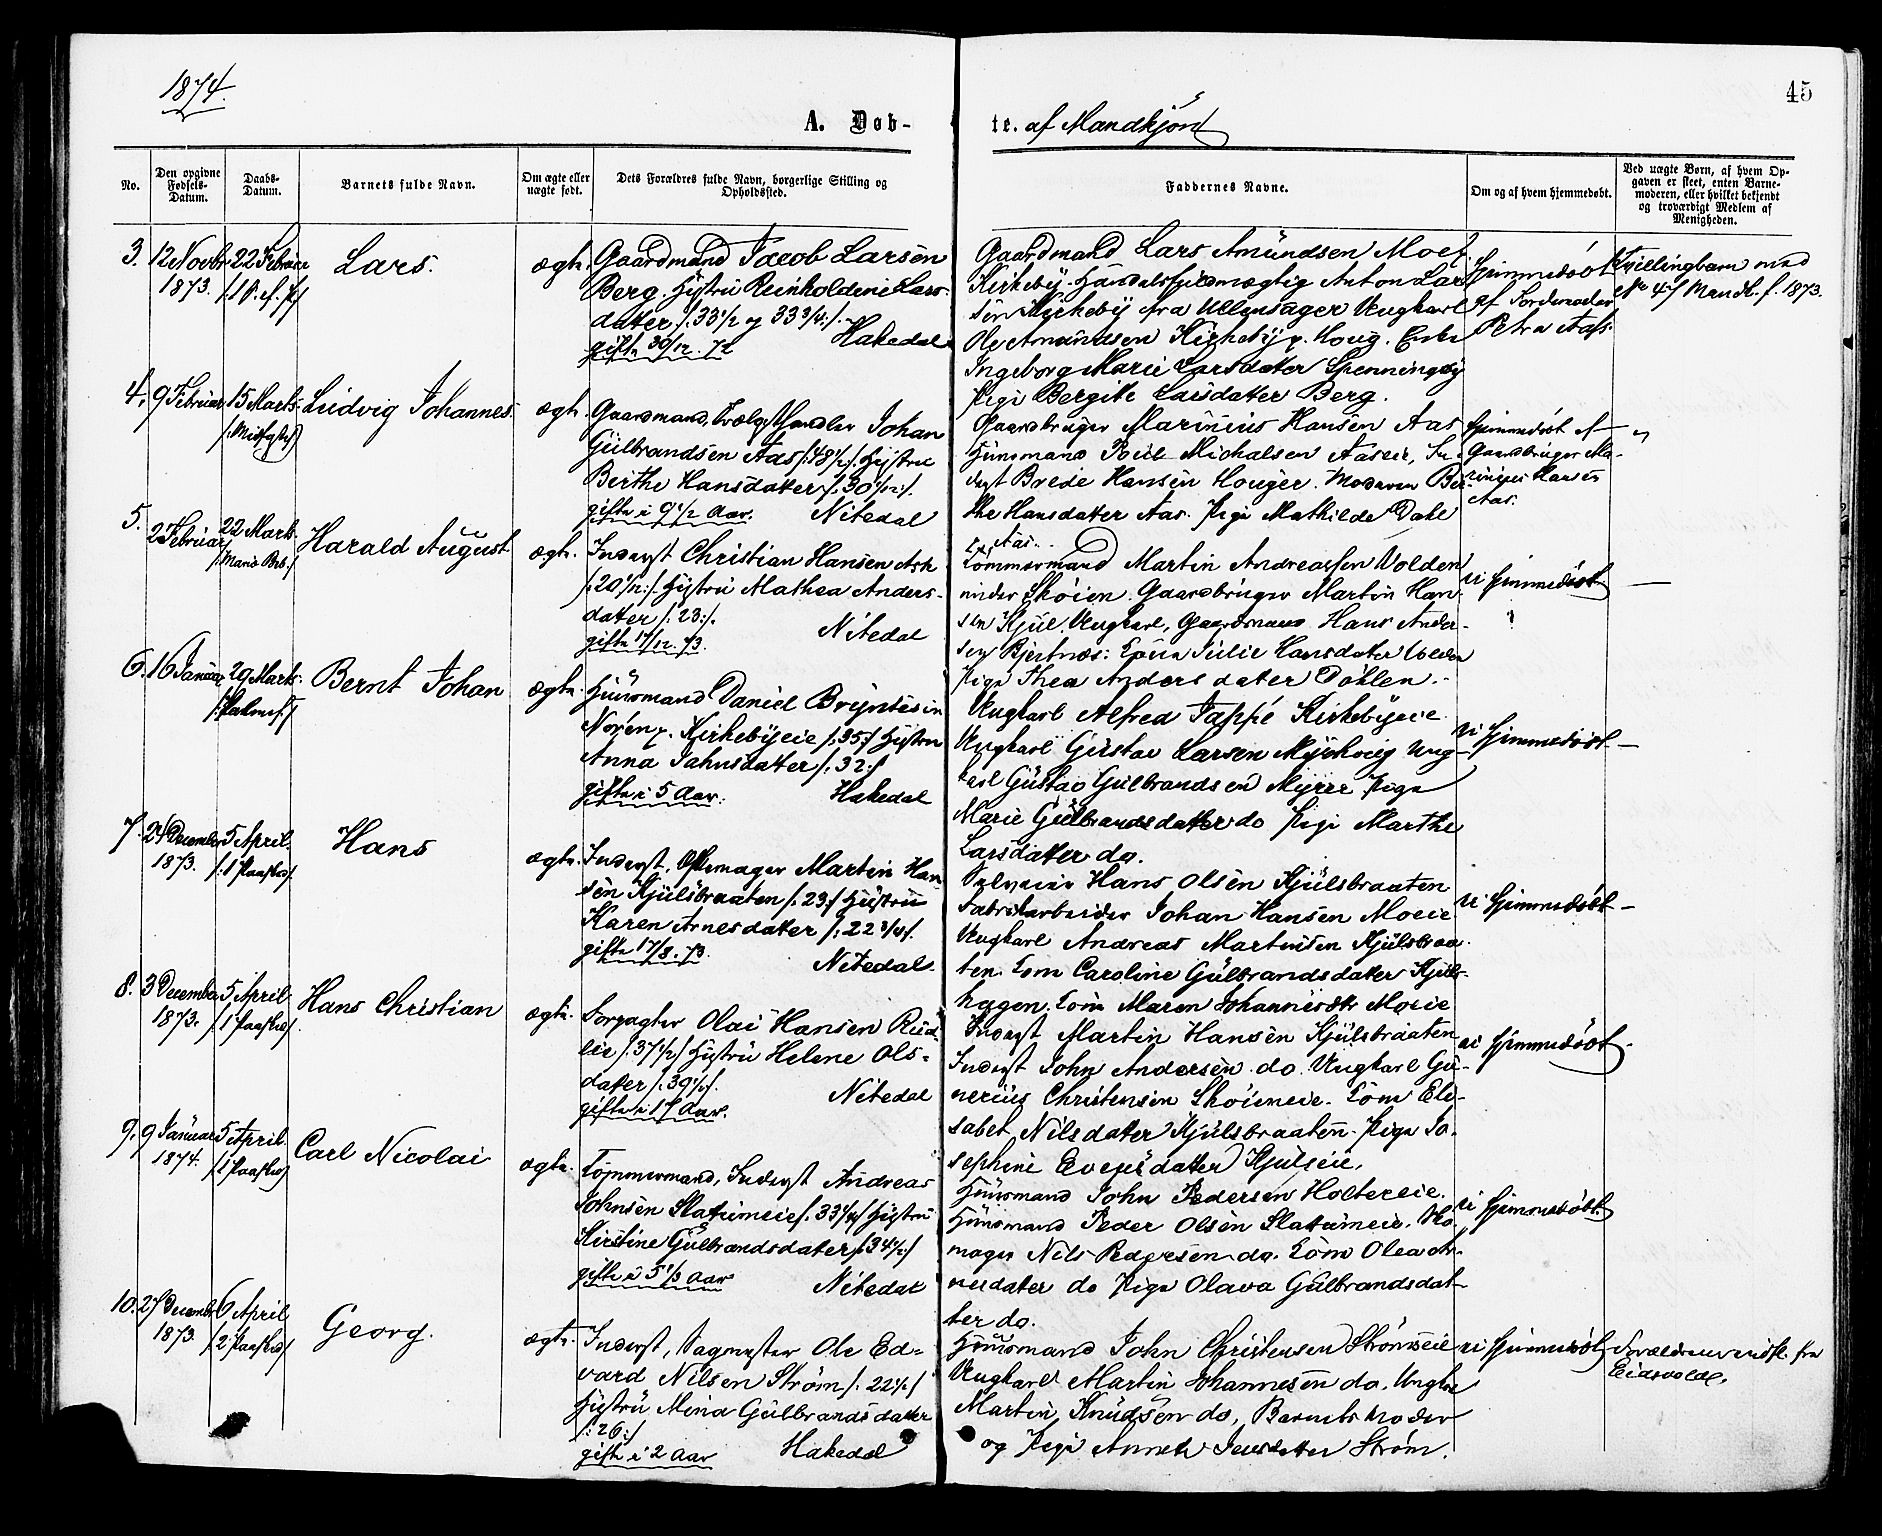 1874.
45
A. Døb-
te. af Mandkjøn
No.
Den opgivne Fødsels-Datum.
Daabs-Datum.
Barnets fulde Navn.
Om ægte eller uægte født.
Dets Forældres fulde Navn, borgerlige Stilling og Opholdssted.
Faddernes Navne.
Om og af hvem hjemmedøbt.
Ved uægte Børn, af hvem Opgaven er skeet, enten Barnemoderen, eller hvilket bekjendt og troværdigt Medlem af Menigheden.
3. 12 Novbr 1873. 22 Februar
Lars.
ægte.
Gaardmand Jacob Larsen
Berg. Hustru Reinholdine Lars-
datter /: 33 1/2 og 33 3/4 :/.
gifte 30/12. 72 Hakedal
Gaardmand Lars Amundsen Moe
Kirkeby. Handelsfuldmægtig Anton Lar-
sen Kirkeby fra Ullensager Ungkarl
Ole Amundsen Kirkeby
Ingeborg Marie Larsdatter Spenningsby
Pige Bergite Larsdatter Berg.
Hjemmedøbt
af Jordmoder
Petra Aas.
Tvillingbarn med
No 4 Mandk. f. 1873.
4. 9 Februar 15 Marts /: Midfaste :/
Ludvig Johannes.
ægte.
Gaardmand, Handler Johan
Gulbrandsen Aas /: 48 1/2 :/ Hustru
Berthe Hansdatter /: 30 1/12 :/.
gifte i 9 1/2 Aar. Nitedal
Gaardbruger Marinius Hansen Aas
Huusmand Michalsen Aaseie, In-
derst Brede Hansen Houger. Moderen Ber-
the Hansdatter Aas. Pige Mathilde Dahl
Aas.
Hjemmedøbt af
Gaardbruger Ma-
rinius Hansen
Aas.
5. 2 Februar 22 Marts /: Maria Beb. :/
Harald August
ægte.
Inderst Christian Hansen Ask
/: 20 1/12 :/. Hustru Mathea Anders-
datter /: 23 :/.
gifte 17/12. 73. Nitedal
Tømmermand Martin Andreassen Volden
under Skøien. Gaardbruger Martin Han-
sen Kjul. Ungkarl, Gaardmand Hans Ander-
sen Bjertnæs: Kone Julie Hansdatter Volden
Pige Thea Andersdatter Døhlen.
ei Hjemmedøbt
6. 16 Januar 29 Marts /: Palmes. :/
Bernt Johan
ægte.
Huusmand Daniel Bryntesen
Noren p. Kirkebyeie /: 35 :/ Hustru
Anna Jahnsdatter /: 32 :/
gifte i 5 Aar. Hakedal
Ungkarl Alfred Jappé Kirkebyeie
Ungkarl Gustav Larsen Myrhoug Ung-
karl Gustav Gulbrandsen Myrer Pige
Marie Gulbrandsdatter do Pige Marthe
Larsdatter do.
ei Hjemmedøbt
7. 24 December 1873. 5 April. /: 1 Paaskd :/
Hans
ægte.
Inderst, Martin Han-
sen Kjulsbraaten /: 23 :/ Hustru
Karen Arnesdatter /: 22 3/4 :/.
gifte 17/8. 73. Nitedal.
Hans Olsen Kjulsbraaten
Fabrikarbeider Johan Hansen Moeie
Ungkarl Andreas Martinsen Kjulsbraa-
ten. Kone Caroline Gulbrandsdatter Kjuls-
hagen. Kone Maren Johannesdtr Moeie
ei Hjemmedøbt
8. 3 December 1873. 5 April /: 1 Paaskd :/
Hans Christian
ægte.
Forpagter Olai Hansen Rud-
eie /: 37 1/2 :/ Hustru Helene Ols-
datter /: 39 1/2 :/.
gifte i 17 Aar. Nitedal
Inderst Martin Hansen Kjulsbraaten
Inderst John Andersen do. Ungkarl Gu-
nerius Christensen Skøieneie. Kone Eli-
sabet Nilsdatter Kjulsbraaten. Pige Jo-
sephine Evensdatter Kjulseie.
ei Hjemmedøbt
9. 9 Januar 1874. 5 April. /: 1 Paaskd :/
Carl Nicolai
ægte.
Tømmermand, Inderst Andreas
Johnsen Slattumeie /: 33 1/4 :/ Hustru
Kirstine Gulbrandsdatter /: 34 1/2 :/
gifte i 5 1/3 Aar Nitedal
Huusmand John Pedersen Holtereie.
Huusmand Peder Olsen Slattumeie. Sko-
mager Nils Pedersen do. Kone Olea Ar-
nesdatter do Pige Olava Gulbrandsdat-
ter do.
ei Hjemmedøbt
10. 27 Decembr 1873. 6 April /: 2 Paaskd :/
Georg.
ægte.
Inderst, Sagmester Ole Ed-
vard Nilsen Strøm /: 22 1/2 :/
Hustru Mina Gulbrandsdatter
/: 26 :/
gifte i 2 Aar Hakedal
Huusmand John Christensen Strømseie
Ungkarl Martin Johannesen do. Ungkarl
Martin Knudsen do, Barnets Moder
og Pige Anneth Jensdatter Strøm.
ei Hjemmedøbt
Forældrene indfl. fra
Eidsvold.